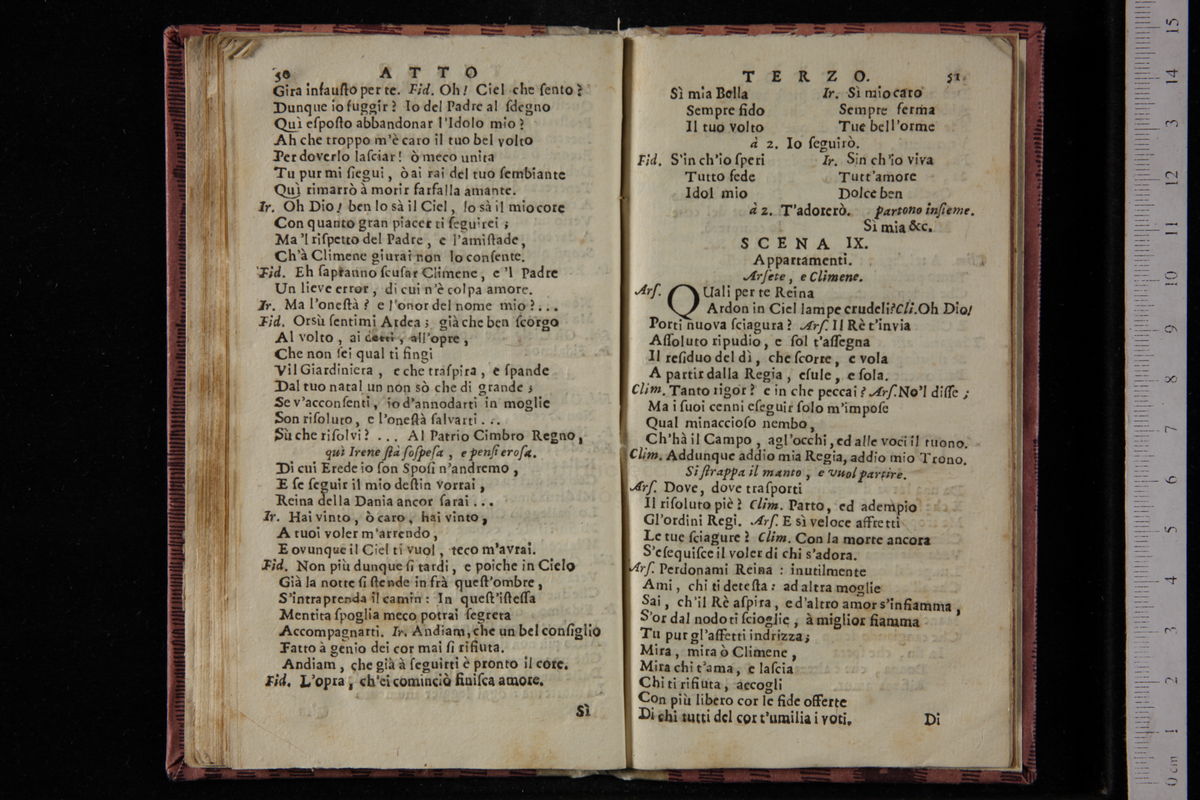 50 ATTO
Gira infauſto per te. Fid. Oh! Ciel che ſento?
Dunque io fuggir? Io del Padre al ſdegno
Quì eſpoſto abbandonar l'Idolo mio?
Ah che troppo m'è caro il tuo bel volto
Per doverlo laſciar! ò meco unita
Tu pur mi ſiegui, ò ai rai del tuo ſembiante
Quì rimarrò à morir farfalla amante.
Ir. Oh Dio! ben lo sà il Ciel, lo sà il mio core
Con quanto gran piacer ti ſeguirei;
Ma'l riſpetto del Padre, e l'amiſtade,
Ch'à Climene giurai non lo conſente.
Fid. Eh ſapranno ſcuſar Climene, e'l Padre
Un lieve error, di cui n'è colpa amore.
Ir. Ma l'oneſtà? e l'onor del nome mio?...
Fid. Orsù ſentimi Ardea; già che ben ſcorgo
Al volto, ai detti, all'opre,
Che non ſei qual ti fingi
Vil Giardiniera, e che traſpira, e ſpande
Dal tuo natal un non sò che di grande;
Se v'acconſenti, io d'annodarti in moglie
Son riſoluto, e l'oneſtà ſalvarti...
Sù che riſolvi? ... Al Patrio Cimbro Regno,
quì Irene ſtà ſoſpeſa, e penſieroſa.
Di cui Erede io ſon Spoſi n'andremo,
E ſe ſeguir il mio deſtin vorrai,
Reina della Dania ancor ſarai...
Ir. Hai vinto, ò caro, hai vinto,
A tuoi voler m'arrendo,
E ovunque il Ciel ti vuol, teco m'avrai.
Fid. Non più dunque ſi tardi, e poiche in Cielo
Già la notte ſi ſtende in frà queſt'ombre,
S'intraprenda il camin: In queſt'iſteſſa
Mentita ſpoglia meco potrai ſegreta
Accompagnarti. Ir. Andiam, che un bel conſiglio
Fatto à genio dei cor mai ſi rifiuta.
Andiam, che già à ſeguirti è pronto il core.
Fid. L'opra, ch'ei cominciò finiſca amore.
Sì
TERZO. 51
Sì mia Bella Ir. Sì mio caro
Sempre fido Sempre ferma
Il tuo volto Tue bell'orme
à 2. Io ſeguirò.
Fid. S'in ch'io ſperi Ir. Sin ch'io viva
Tutto fede Tutt'amore
Idol mio Dolce ben
à 2. T'adorerò. partono inſieme.
Sì mia &c.
SCENA IX.
Appartamenti.
Arſete, e Climene.
Arſ. QUali per te Reina
Ardon in Ciel lampe crudeli? Cli. Oh Dio!
Porti nuova ſciagura? Arſ. Il Rè t'invia
Aſſoluto ripudio, e ſol t'aſſegna
Il reſiduo del dì, che ſcorre, e vola
A partir dalla Regia, eſule, e ſola.
Clim. Tanto rigor? e in che peccai? Arſ. No'l diſſe;
Ma i ſuoi cenni eſeguir ſolo m'impoſe
Qual minaccioſo nembo,
Ch'hà il Campo, agl'occhi, ed alle voci il tuono.
Clim. Addunque addio mia Regia, addio mio Trono.
Si ſtrappa il manto, e vuol partire.
Arſ. Dove, dove traſporti
Il riſoluto piè? Clim. Parto, ed adempio
Gl'ordini Regi. Arſ. E sì veloce affretti
Le tue ſciagure? Clim. Con la morte ancora
S'eſequiſce il voler di chi s'adora.
Arſ. Perdonami Reina: inutilmente
Ami, chi ti deteſta: ad altra moglie
Sai, ch'il Rè aſpira, e d'altro amor s'infiamma,
S'or dal nodo ti ſcioglie, à miglior fiamma
Tu pur gl'affetti indrizza;
Mira, mira ò Climene,
Mira chi t'ama, e laſcia
Chi ti rifiuta, accogli
Con più libero cor le fide offerte
Di chi tutti del cor t'umilia i voti.
Di
0 cm 1 2 3 4 5 6 7 8 9 10 11 12 13 14 15